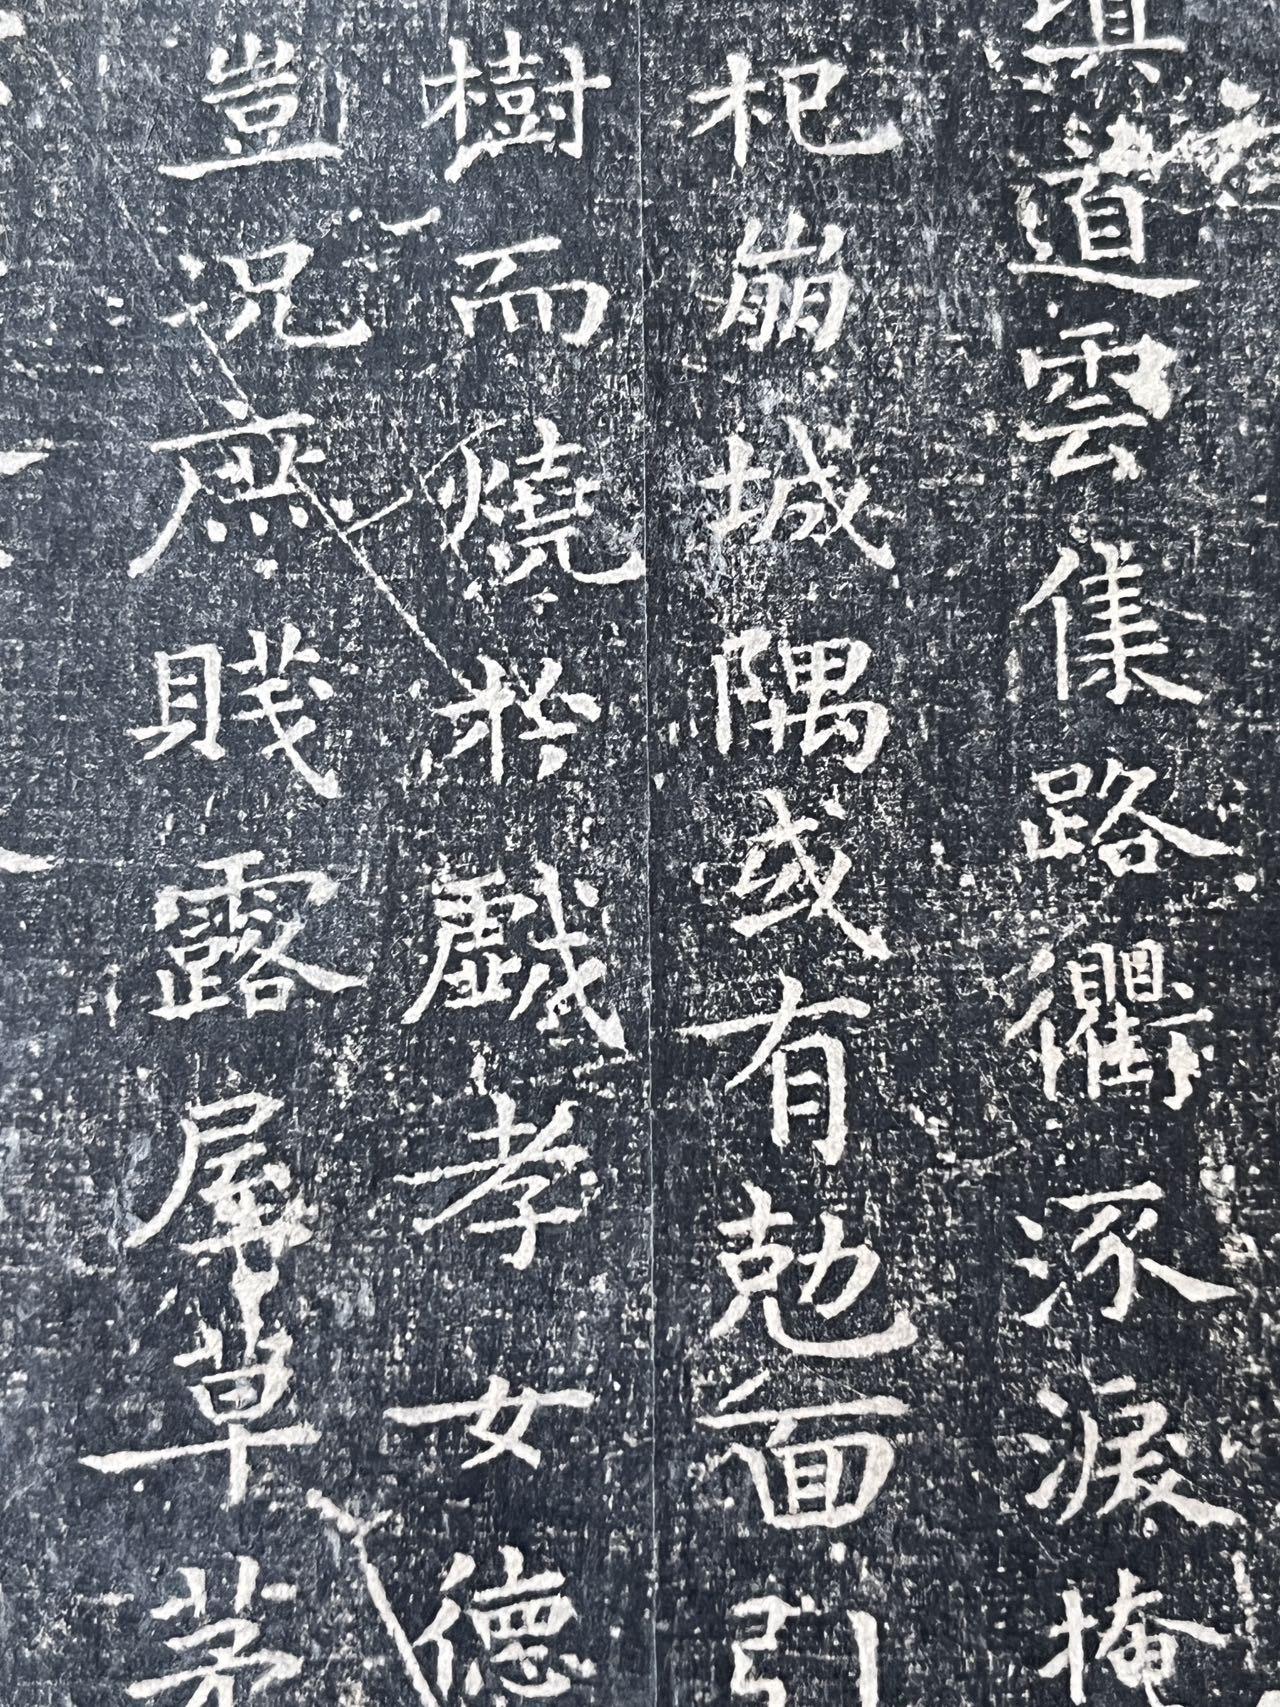 填道雲集路衢流淚掩
杞崩城隅或有勊面引
樹而燒於戲孝女德
豈況庶賤露屋草茅